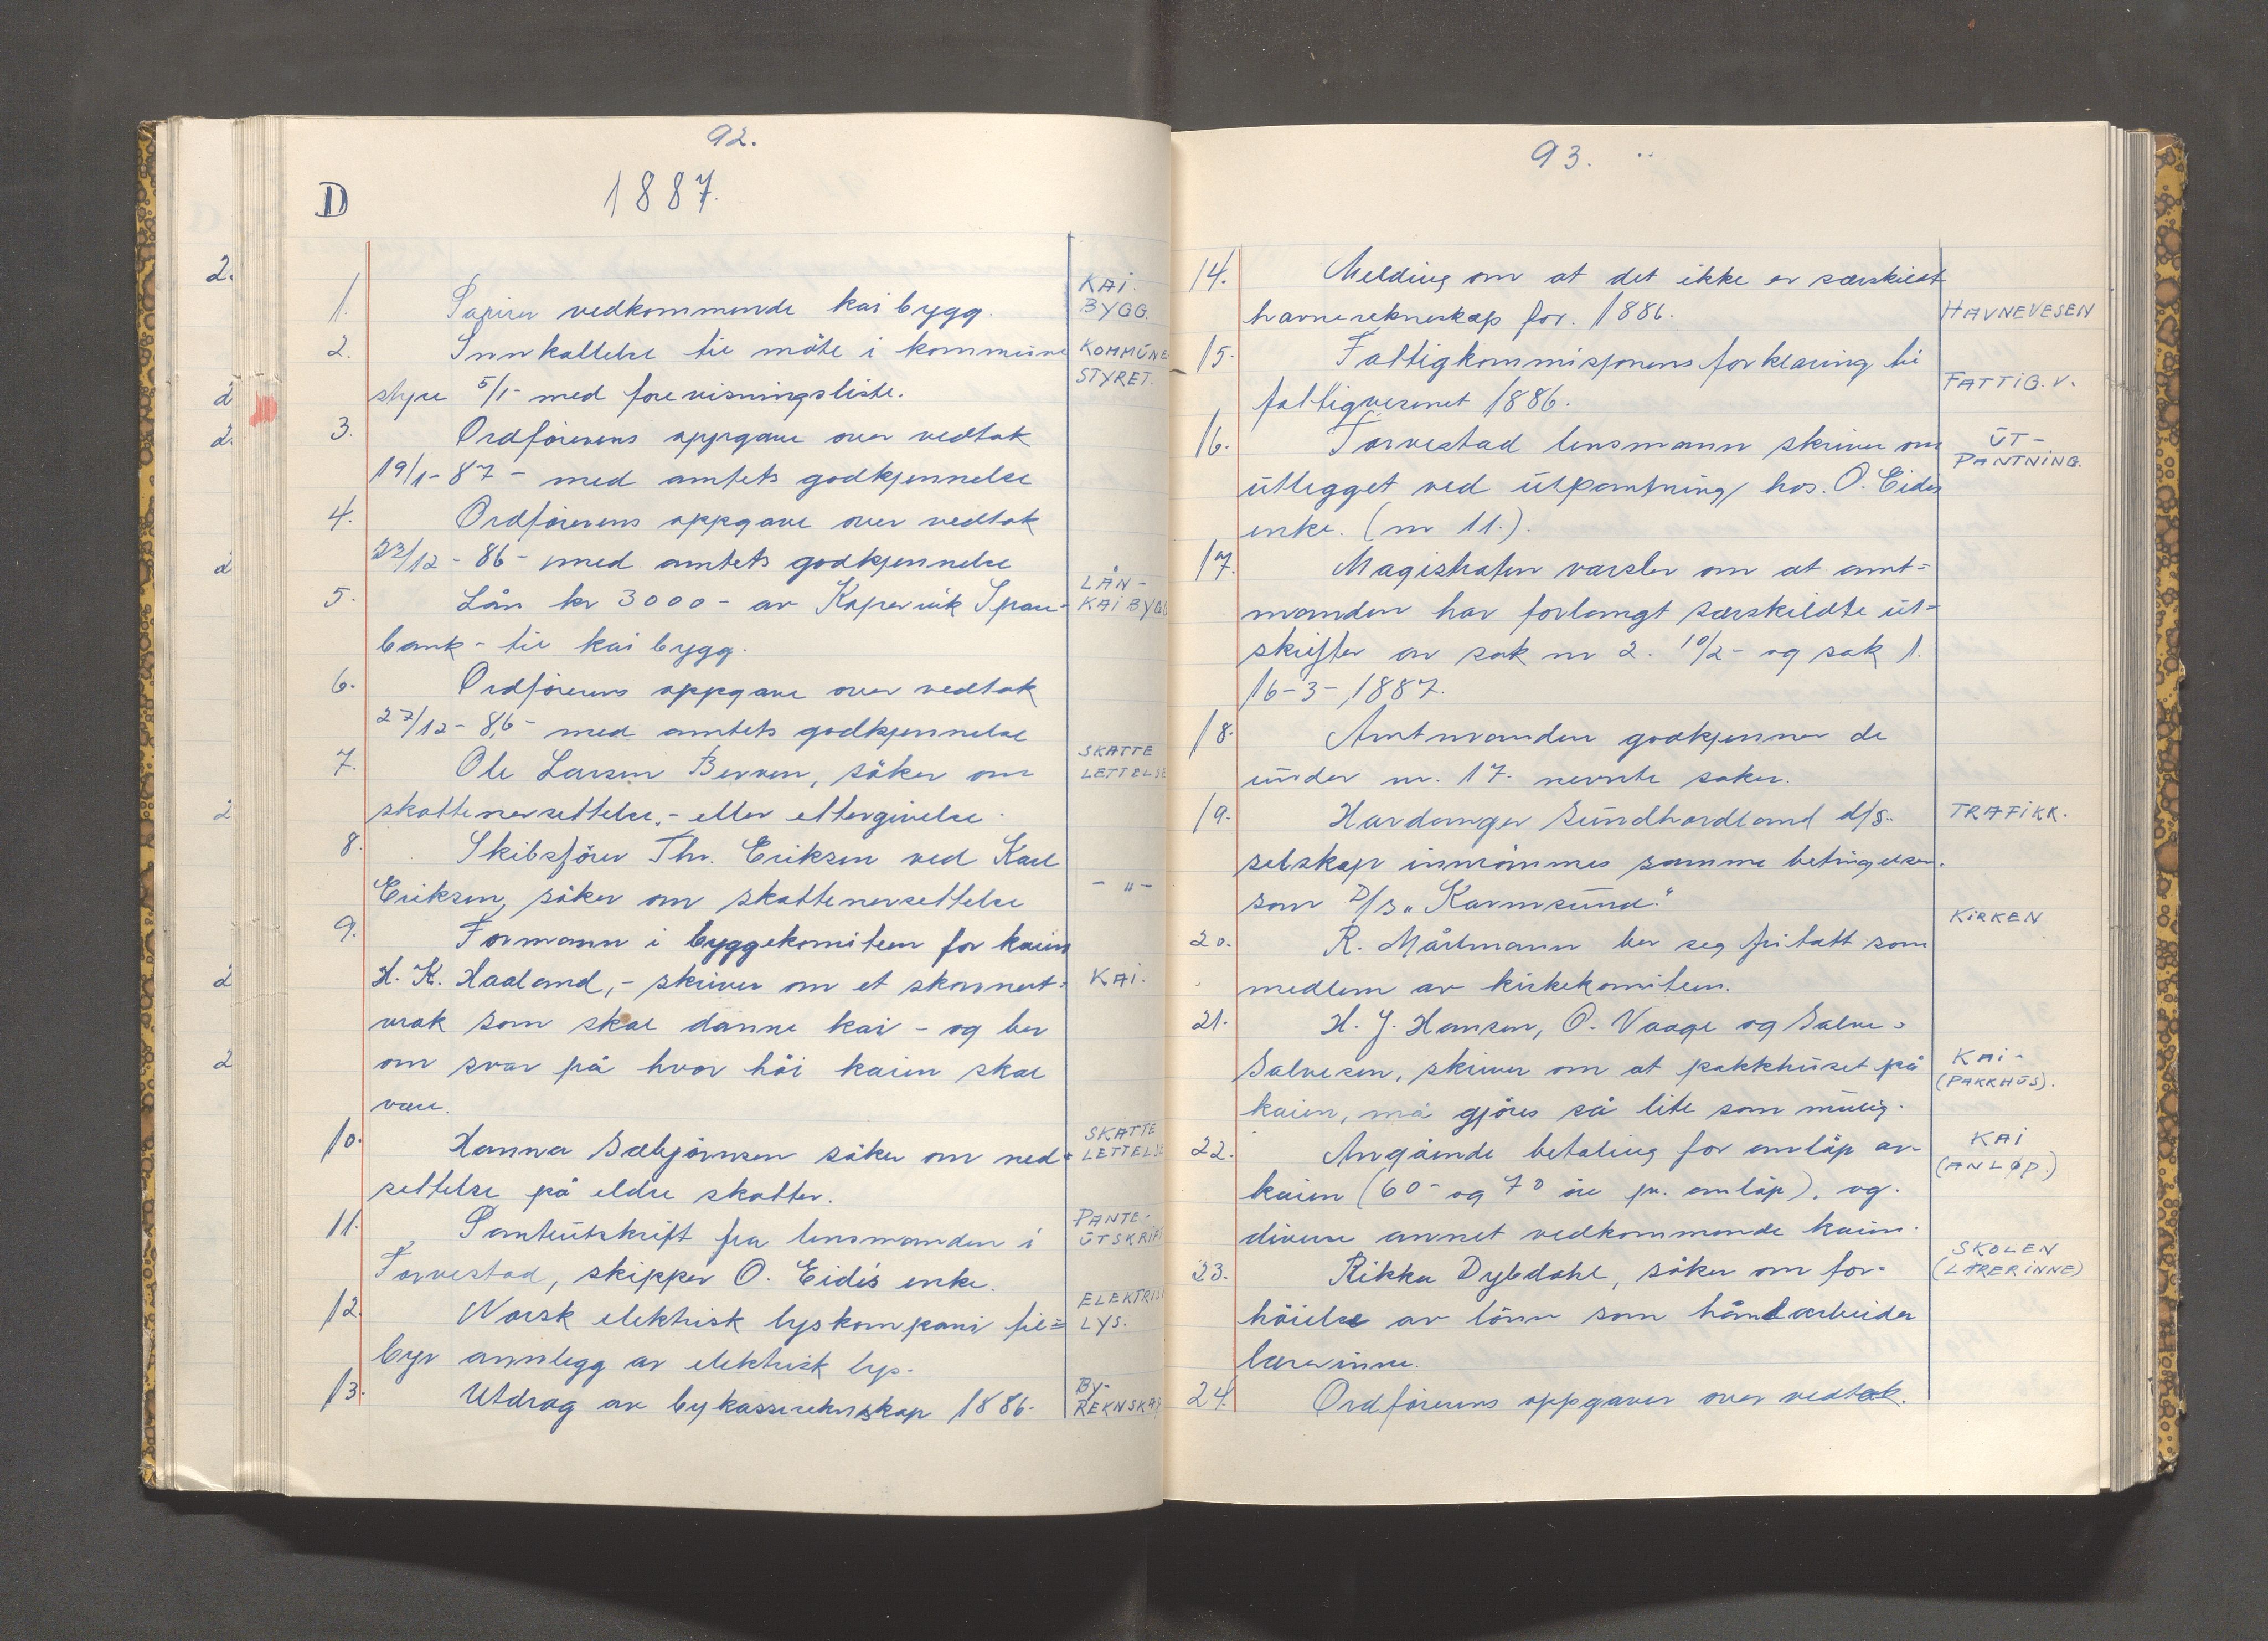 92.
D
1887.
1. Papirer vedkommende kai bygg. KAI. BYGG.
2. Innkallelse til möte i kommune KOMMUNE
styre 5/1- med forevisningsliste. STYRET.
3. Ordförerens oppgave over vedtak
19/1-87 - med amtets godkjennelse
4. Ordförerens oppgave over vedtak
23/12-86- med amtets godkjennelse
5. Lån kr 3000- av Kopervik Spare- LÅN- KAI BYGG
bank - til kai bygg.
6. Ordförerens oppgave over vedtak
27/12-86- med amtets godkjennelse
7. Ole Larsen Berven, söker om SKATTE LETTELSE
skattenersettelse,- eller ettergivelse.
8. Skibsförer Thr. Eriksen ved Karl
Eriksen, söker om skattenersettelse - " -
9. Formann i byggekomiteen for kaien
H. K. Haaland,- skriver om et skonnert- KAI.
vrak som skal danne kai - og ber
om svar på hvor höi kaien skal
være.
10. Hanna Sæbjörnsen söker om ned- SKATTE LETTELSE
settelse på eldre skatter.
11. Panteutskrift fra lensmanden i PANTE- UTSKRIF
Torvestad, skipper O. Eides enke.
12. Norsk elektrisk lyskompani til= ELEKTRIS LYS.
byr annlegg av elektrisk lys.
13. Utdrag av bykasserekneskap 1886. BY- REKNSKAP
93.
14. Melding om at det ikke er særskildt
havnerekneskap for. 1886. HAVNEVESEN
15. Fattigkommisjonens forklaring til
fattigvesenet 1886. FATTIG.V.
16. Torvestad lensmann skriver om UT-
utlegget ved utpantning hos. O. Eides PANTNING.
enke. (nr 11.).
17. Magistraten varsler om at amt=
manden har forlangt særskildte ut=
skrifter av sak nr 2. 10/2- og sak 1.
16-3-1887.
18. Amtmanden godkjenner de
under nr. 17. nevnte saker.
19. Hardanger Sundhordland d/s. TRAFIKK.
selskap innrömmes samme betingelser.
som D/s „Karmsund."
20. R. Mårtmann ber seg fritatt som KIRKEN
medlem av kirkekomiteen.
21. H. J. Hansen, O. Vaage og Salve
Salvesen, skriver om at pakkhuset på KAI- (PAKKHUS).
kaien, må gjöres så lite som mulig.
22. Angående betaling for anlöp av KAI (ANLØP.)
kaien (60- og 70 öre pr. anlöp), og.
diverse annet vedkommende kaien.
23. Rikka Dybdahl, söker om for- SKOLEN (LÆRERINNE)
höielse av lönn som håndarbeider
lærerinne.
24. Ordförerens oppgaver over vedtak.